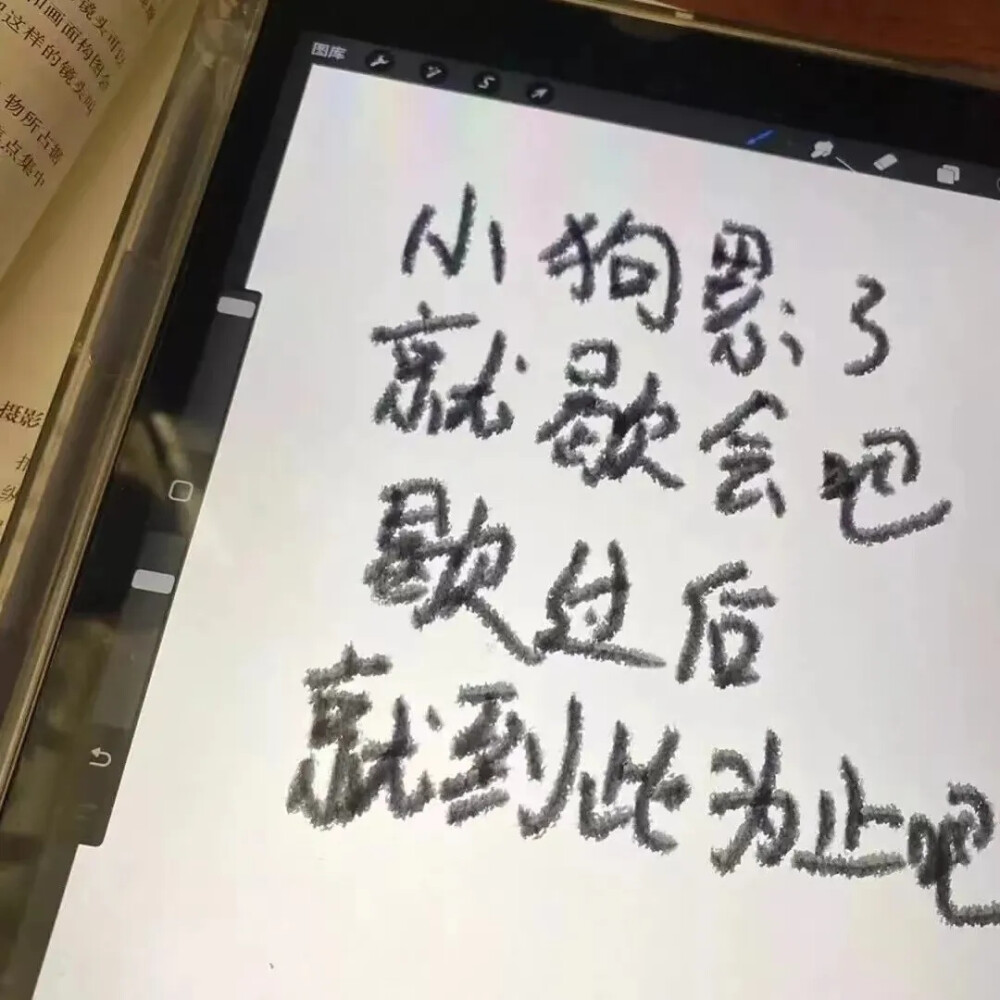 镜头可以
和画面构图会
这样的镜头叫
物所占据
点集中
摄影
图库
小狗累了
就歇会吧
歇过后
就到此为止吧